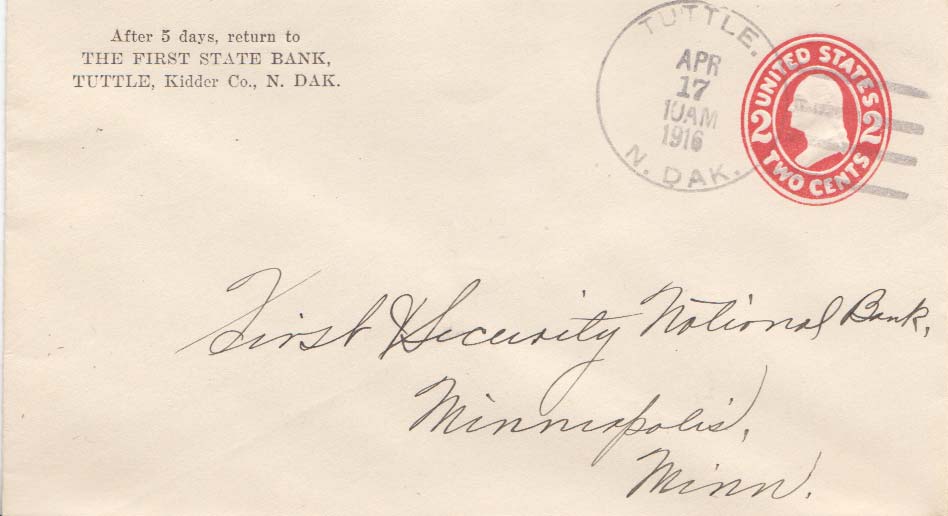 After 5 days, return to
THE FIRST STATE BANK,
TUTTLE, Kidder Co., N. DAK.
TUTTLE.
APR
17
10AM
1916
N. DAK.
UNITED STATES
2 2
TWO CENTS
First & Security National Bank,
Minneapolis,
Minn.